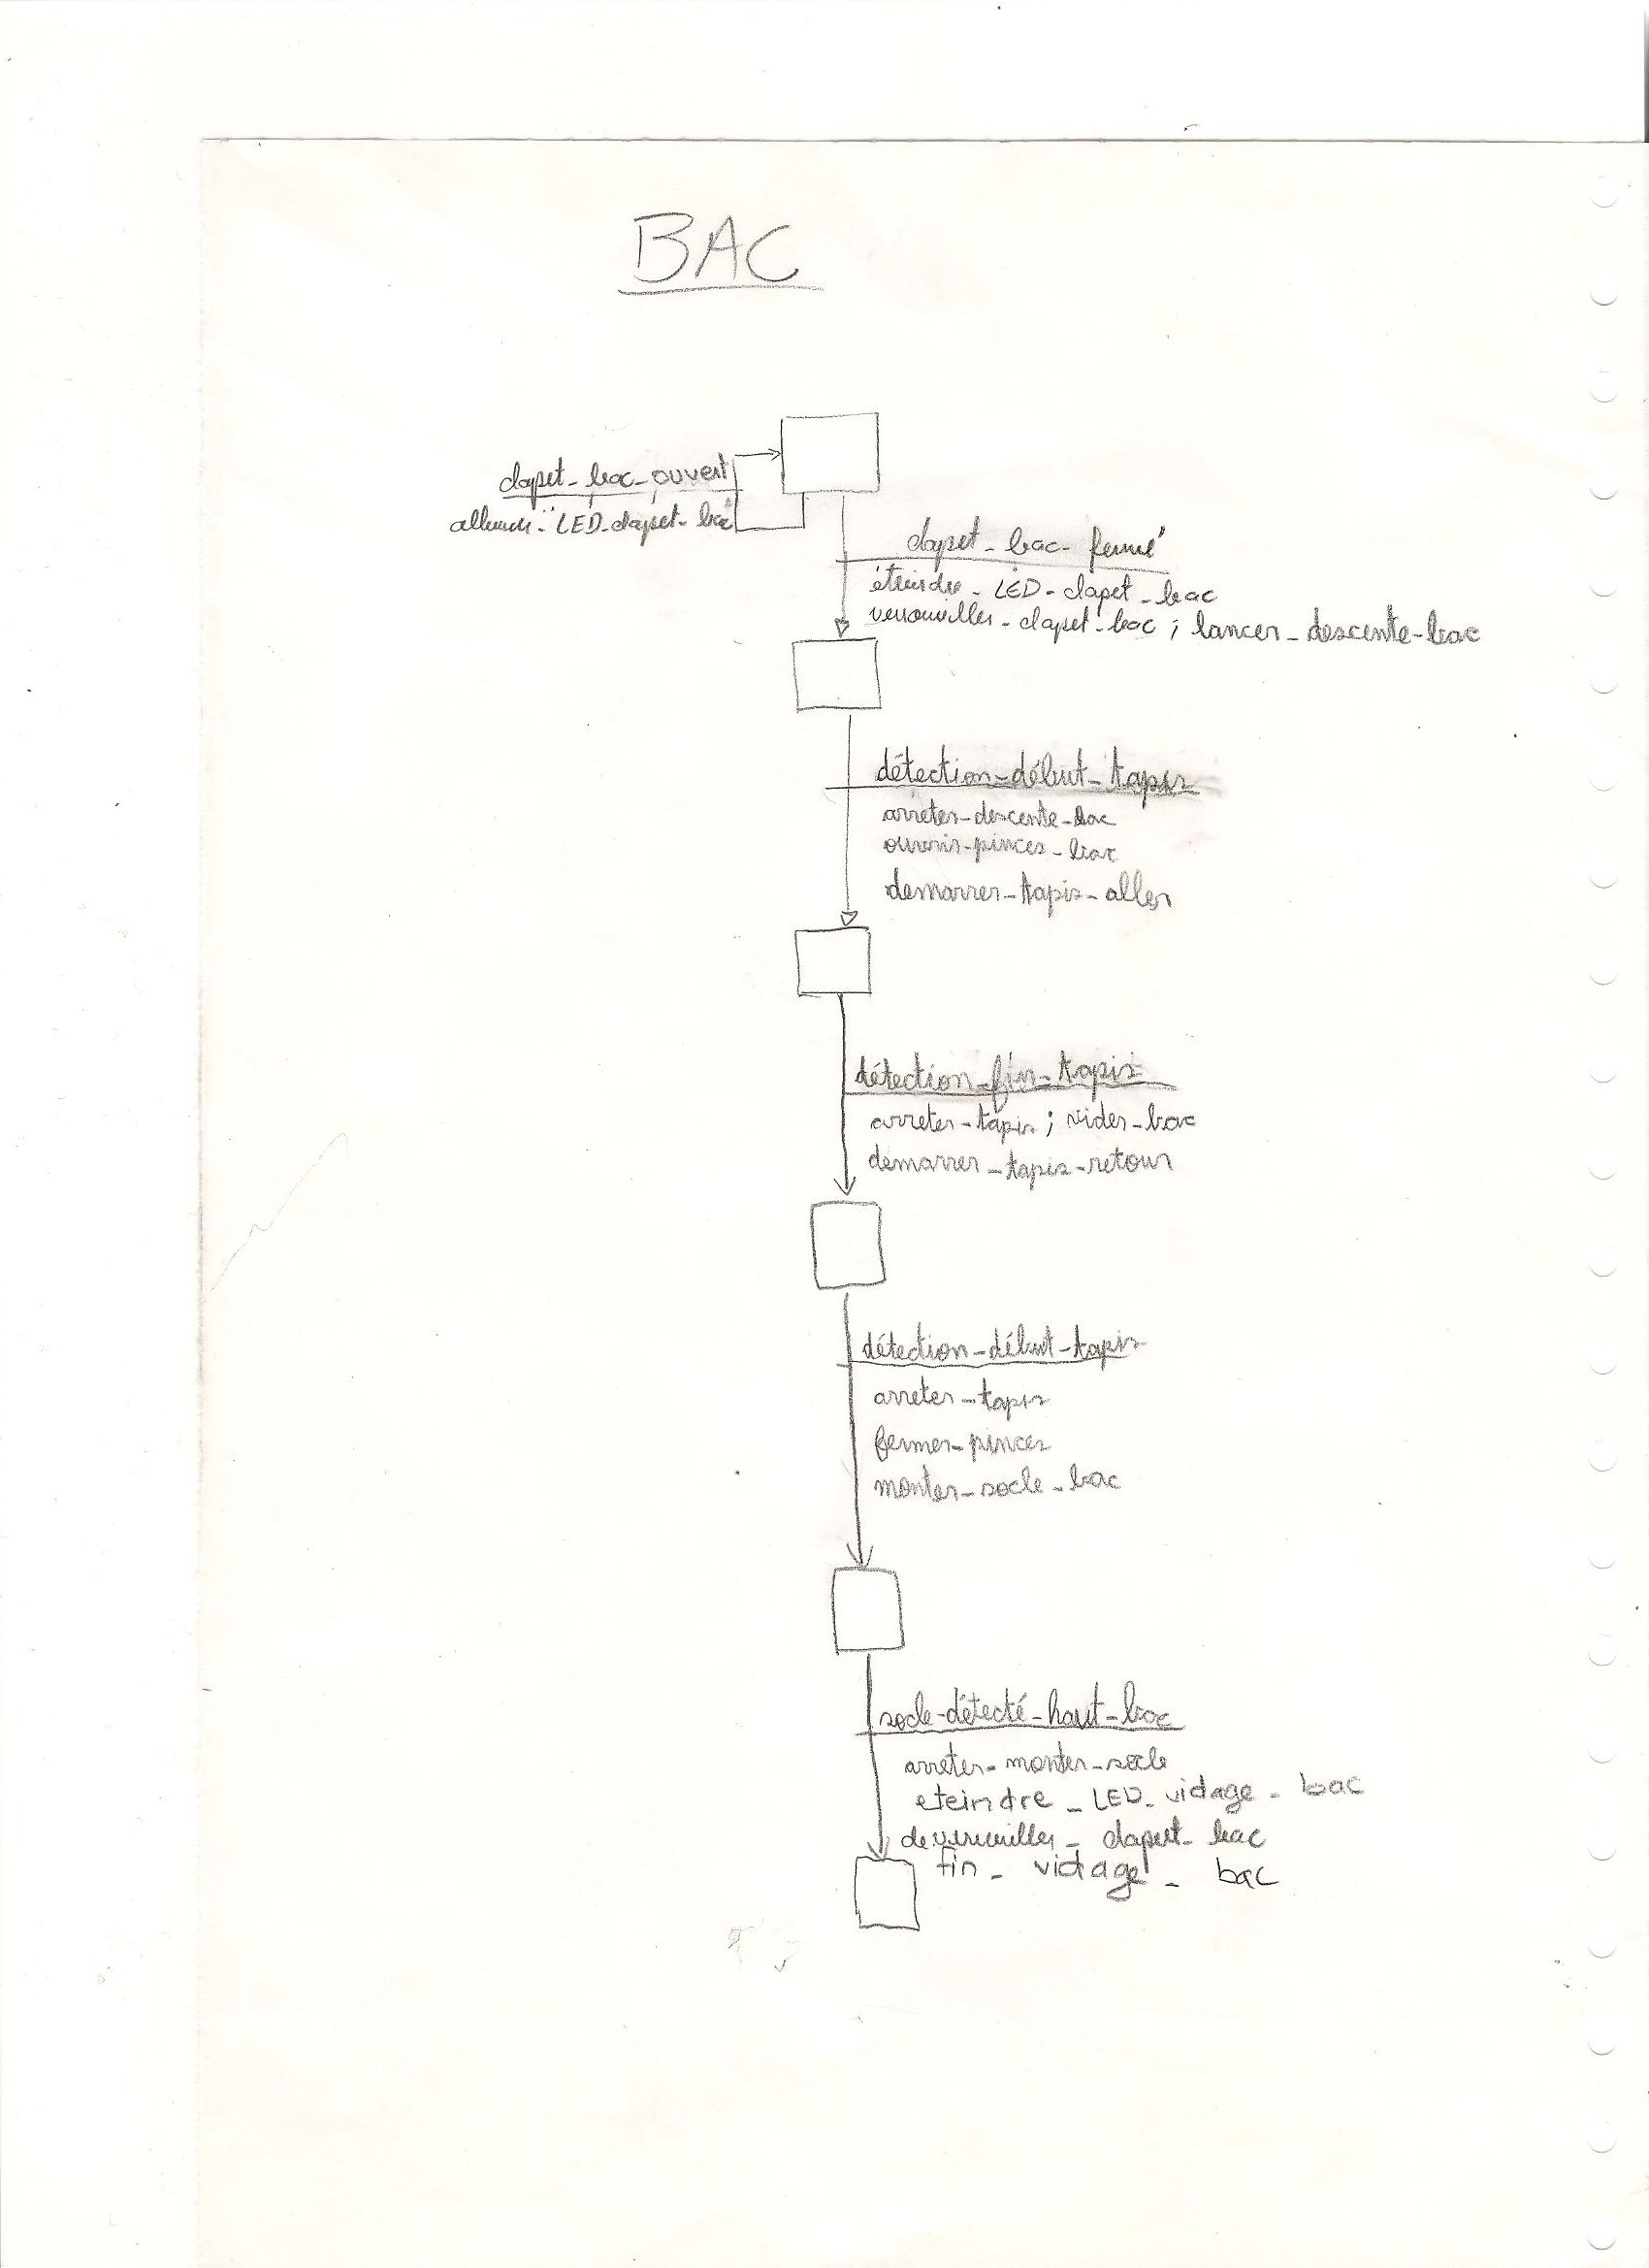 BAC
clapet_bac_ouvert
allumer_LED_clapet_bac
clapet_bac_fermé
éteindre_LED_clapet_bac
verrouiller_clapet_bac ; lancer_descente_bac
détection_début_tapis
arreter_descente_bac
ouvrir_pinces_bac
demarrer_tapis_aller
détection_fin_tapis
arreter_tapis ; vider_bac
demarrer_tapis_retour
détection_début_tapis
arreter_tapis
fermer_pinces
monter_socle_bac
socle_détecté_haut_bac
arreter_monter_socle
eteindre_LED_vidage_bac
deverouiller_clapet_bac
fin_vidage_bac